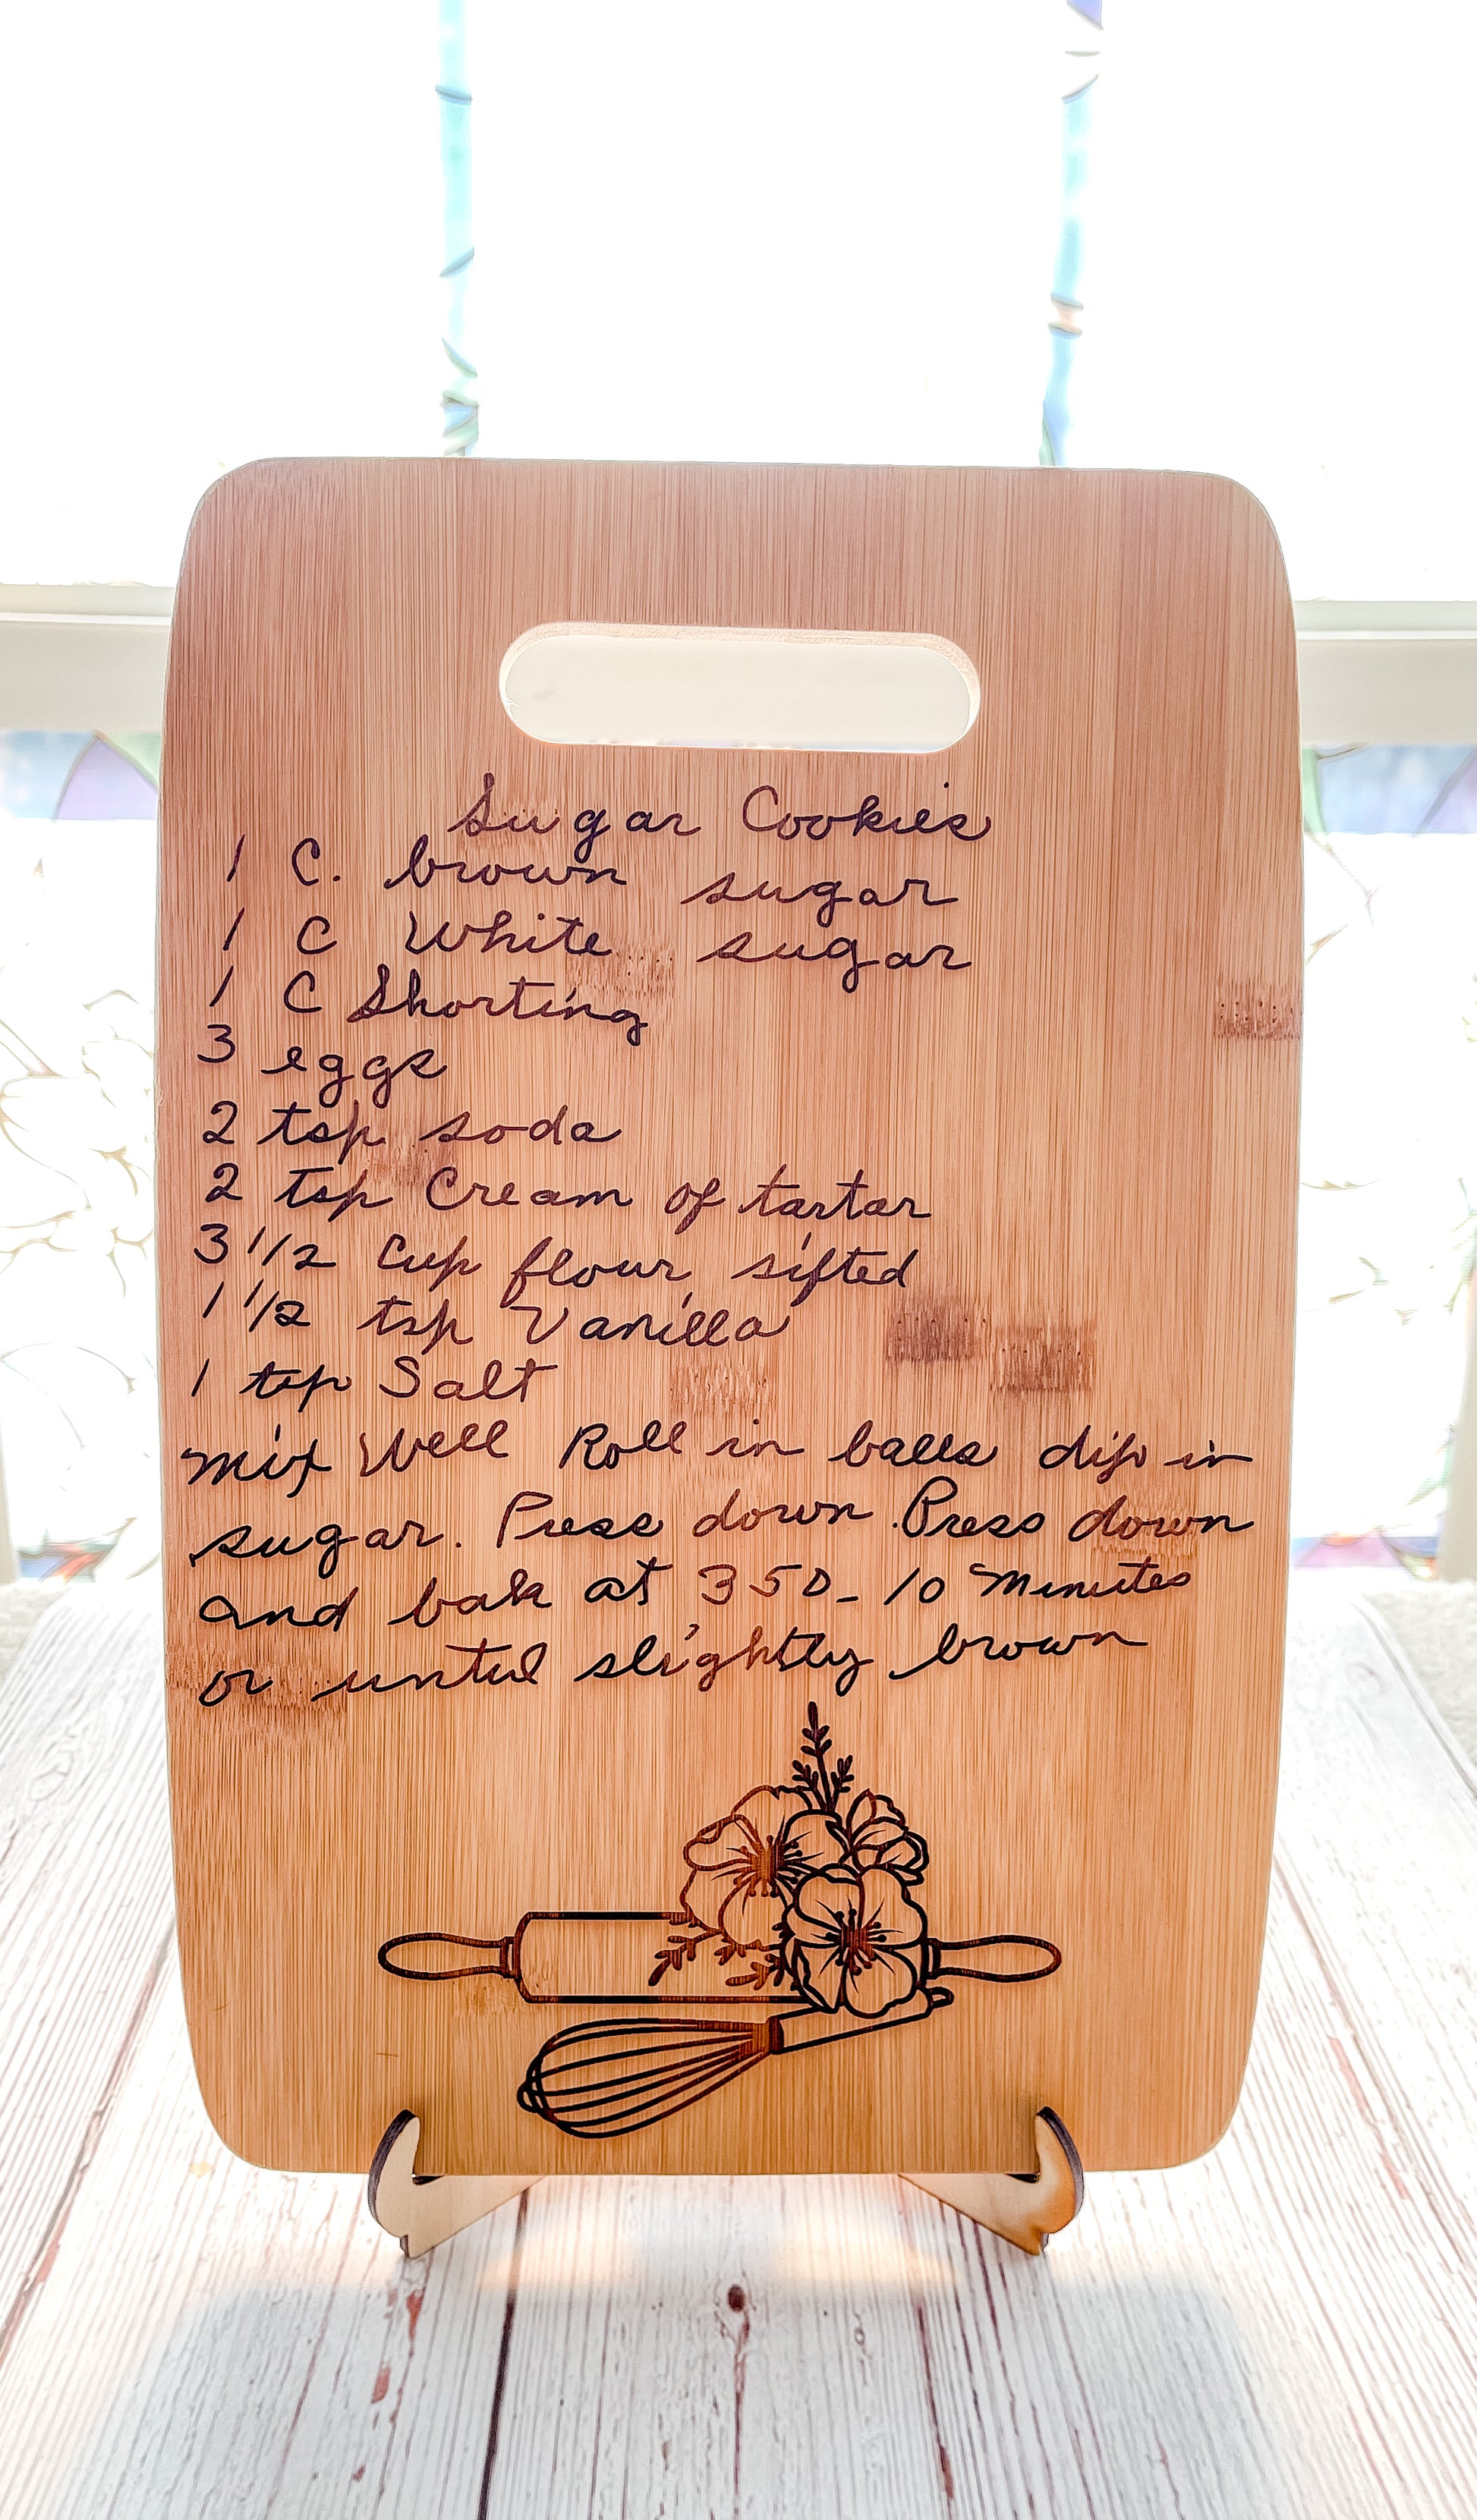 Sugar Cookies
1 C. brown sugar
1 C White sugar
1 C Shorting
3 eggs
2 tsp soda
2 tsp Cream of tartar
3 1/2 Cup flour, sifted
1 1/2 tsp Vanilla
1 tsp Salt
mix Well Roll in balls dip in
sugar. Press down. Press down
and bak at 350- 10 Minutes
or until slightly brown